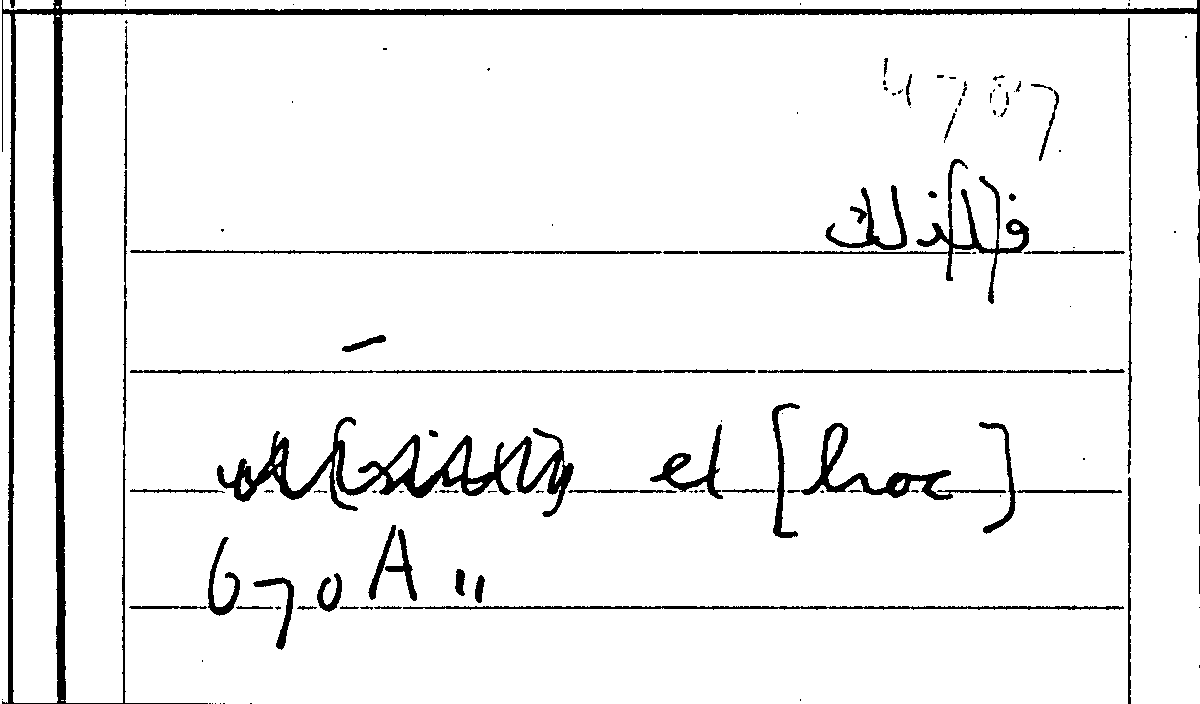 4707
ف[ـلـ]ـذلك
el [hoc]
670 A "